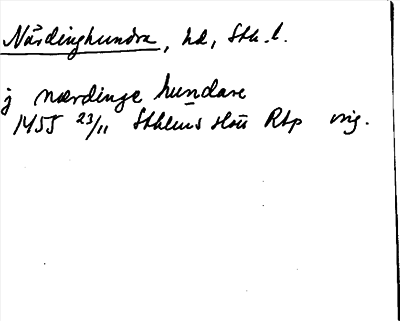 Närdinghundra, hd, Sth. l.
j nærdinge hundare
1455 23/11 Sthlms slott Rtp orig.